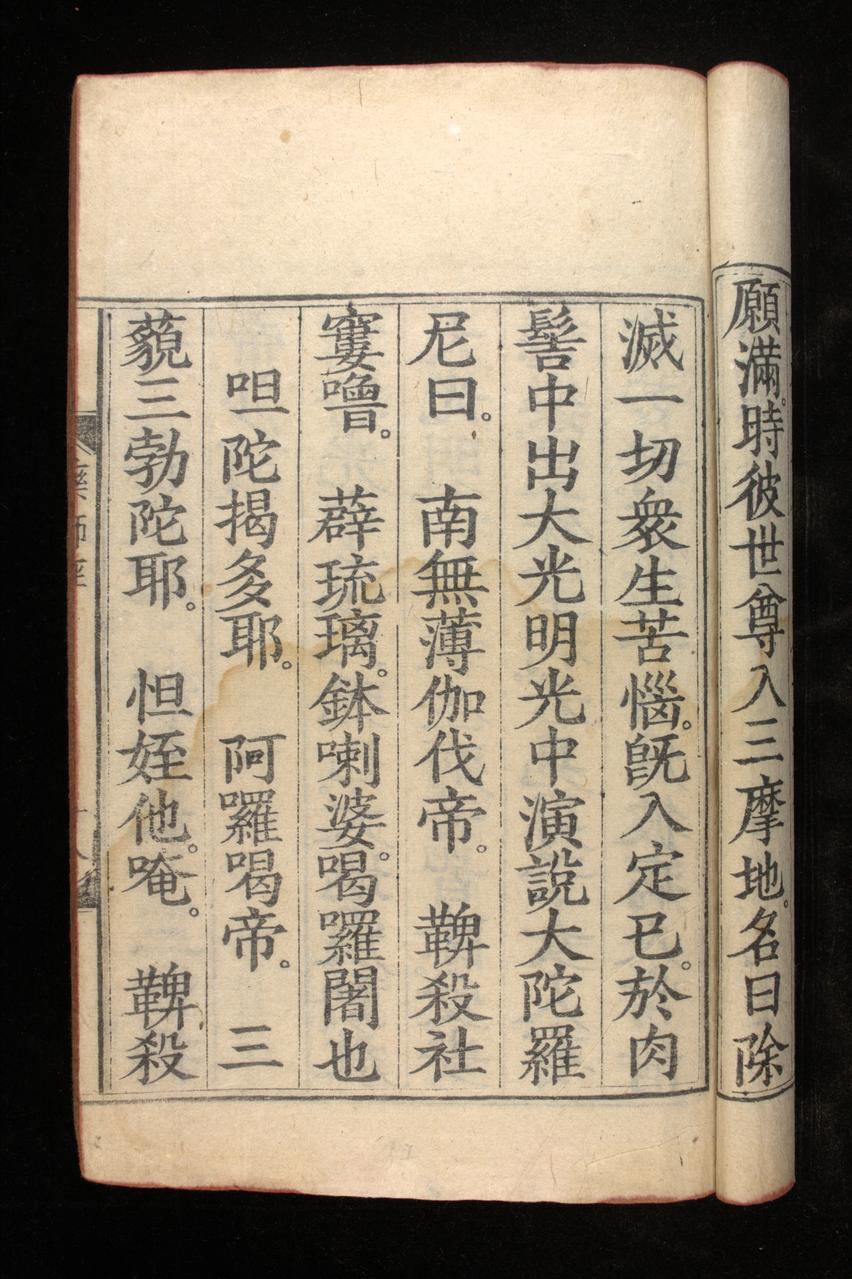 願滿。時彼世尊入三摩地。名曰除
滅一切衆生苦惱。旣入定已。於肉
髻中出大光明光中演說大陀羅
尼曰。 南無薄伽伐帝。 鞞殺社
窶嚕。 薜琉璃。鉢喇婆。喝囉闍也
呾陀揭多耶。 阿囉喝帝。 三
藐三勃陀耶。 怛姪他。唵。 鞞殺
藥師經